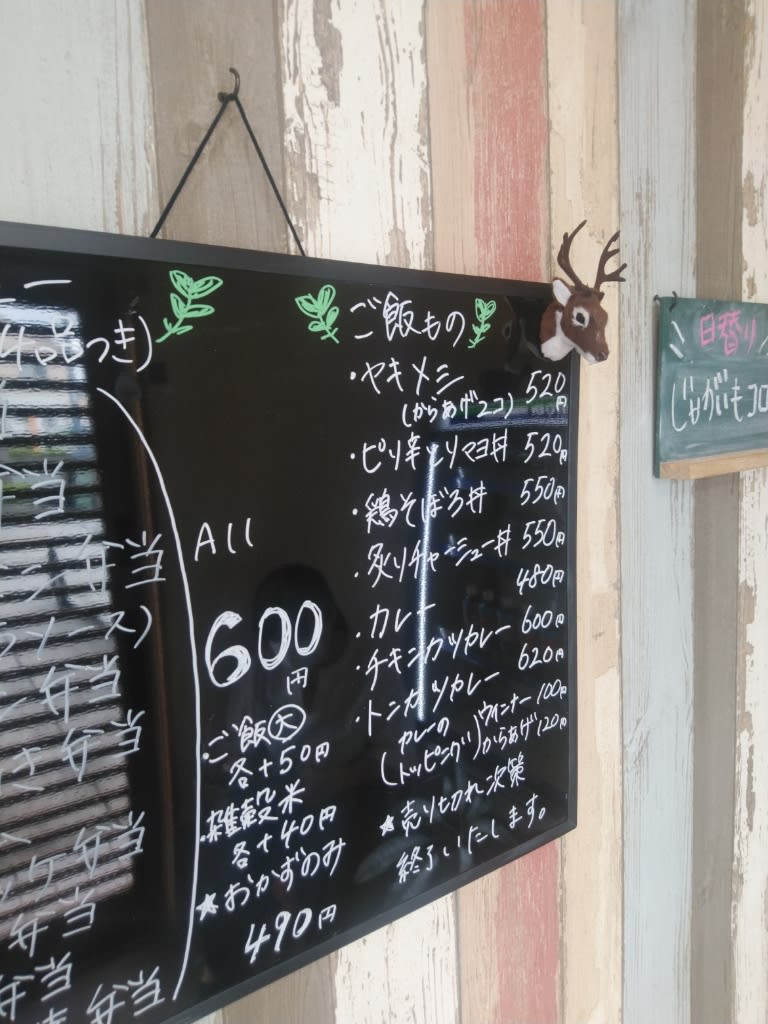 ー
4品つき)
弁当
ン弁当
ソース)
ン弁当
き弁当
ッケ弁当
弁当
弁当
弁当
All
600
円
・ご飯大
各+50円
・雑穀米
各+40円
★おかずのみ
490円
ご飯もの
・ヤキメシ 520円
(からあげ2コ)
・ピリ辛とりマヨ丼 520円
・鶏そぼろ丼 550円
・炙りチャーシュー丼 550円
・カレー 480円
・チキンカツカレー 600円
・トンカツカレー 620円
(カレーの
トッピング) ウインナー 100円
からあげ 120円
★売り切れ次第
終了いたします。
日替り
じゃがいもコロ